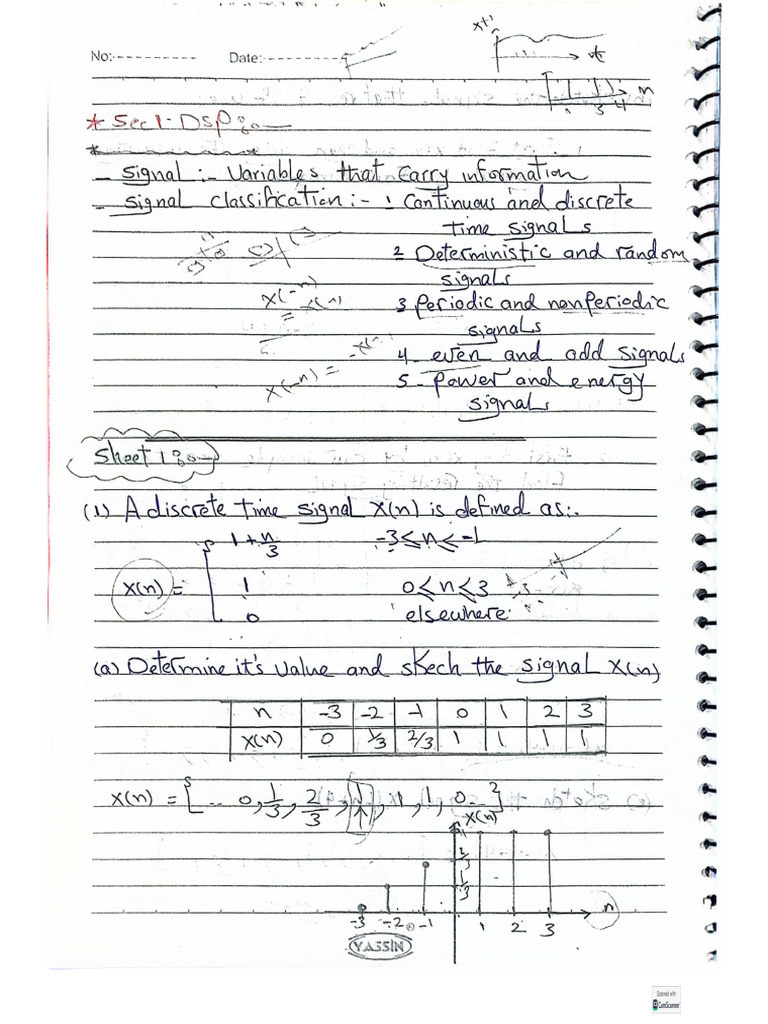 x+1
No:---------- Date:------------
t
n
3 4
* Sec1:DSP:-
- Signal :- Variables that Carry information
- Signal classification :- 1 Continuous and discrete
time signals
2 Deterministic and random
signals
x(-n)
= x(n)
3 Periodic and nonperiodic
signals
4 - even and odd signals
x(-n) =
5 - Power and energy
signals
Sheet 1:-
(1) A discrete time signal X(n) is defined as:.
1 + n/3 -3≤n≤-1
X(n) = 1 0≤n≤3
0 elsewhere.
(a) Determine it's value and skech the signal X(n)
n -3 -2 -1 0 1 2 3
X(n) 0 1/3 2/3 1 1 1 1
X(n) = { .. 0, 1/3, 2/3, 1, 1, 1, 0 .. }
↑
X(n)
1
2/3
1/3
-3 -2 -1 1 2 3 n
YASSIN
Scanned with
CamScanner